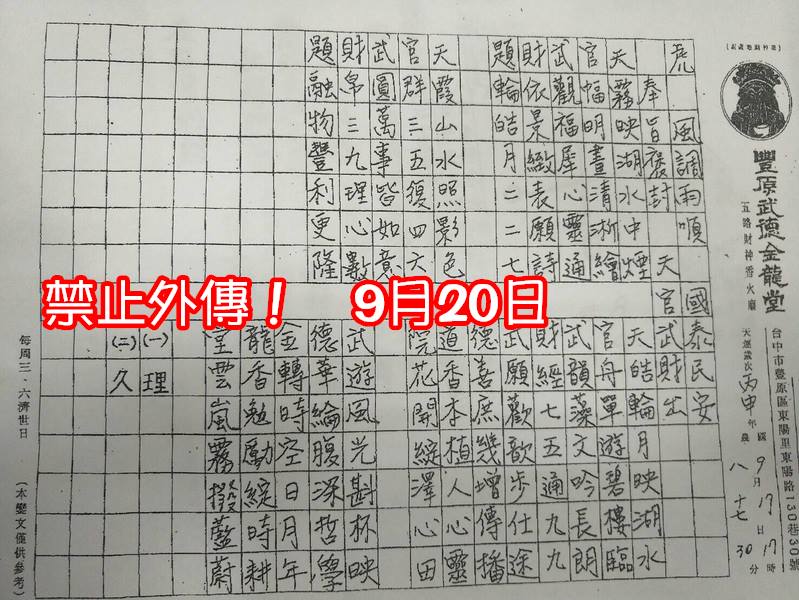 豐原武德金龍堂
五路財神香火廟
台中市豐原區東陽里東陽路130巷30號
天運歲次丙申年
國 9月17日17時
農 八 十七 30分
虎 風調雨順 國泰民安
奉旨褒封 天官武財出
天霧映湖水中煙
官幅明畫清淅繪
武觀福犀心靈通
財依景緻表願詩
題輪皓月二二七
天霞山水照影色
官群三五復四六
武圓萬事皆如意
財帛三九理心數
題融物豐利更隆
天皓輪月映湖水
官舟單遊碧樓臨
武韻藻文吟長朗
財經七五通九九
武願歡歆步仕途
德善庶幾增傳播
道香本植人心靈
院花開綻澤心田
武遊風光斟杯映
德華綸腹深哲學
金轉時空日月年
龍香勉勵綻時耕
堂雲嵐霧撥藍蔚
(一)理
(二)久
每周三、六濟世日
(本鑾文僅供參考)
禁止外傳! 9月20日